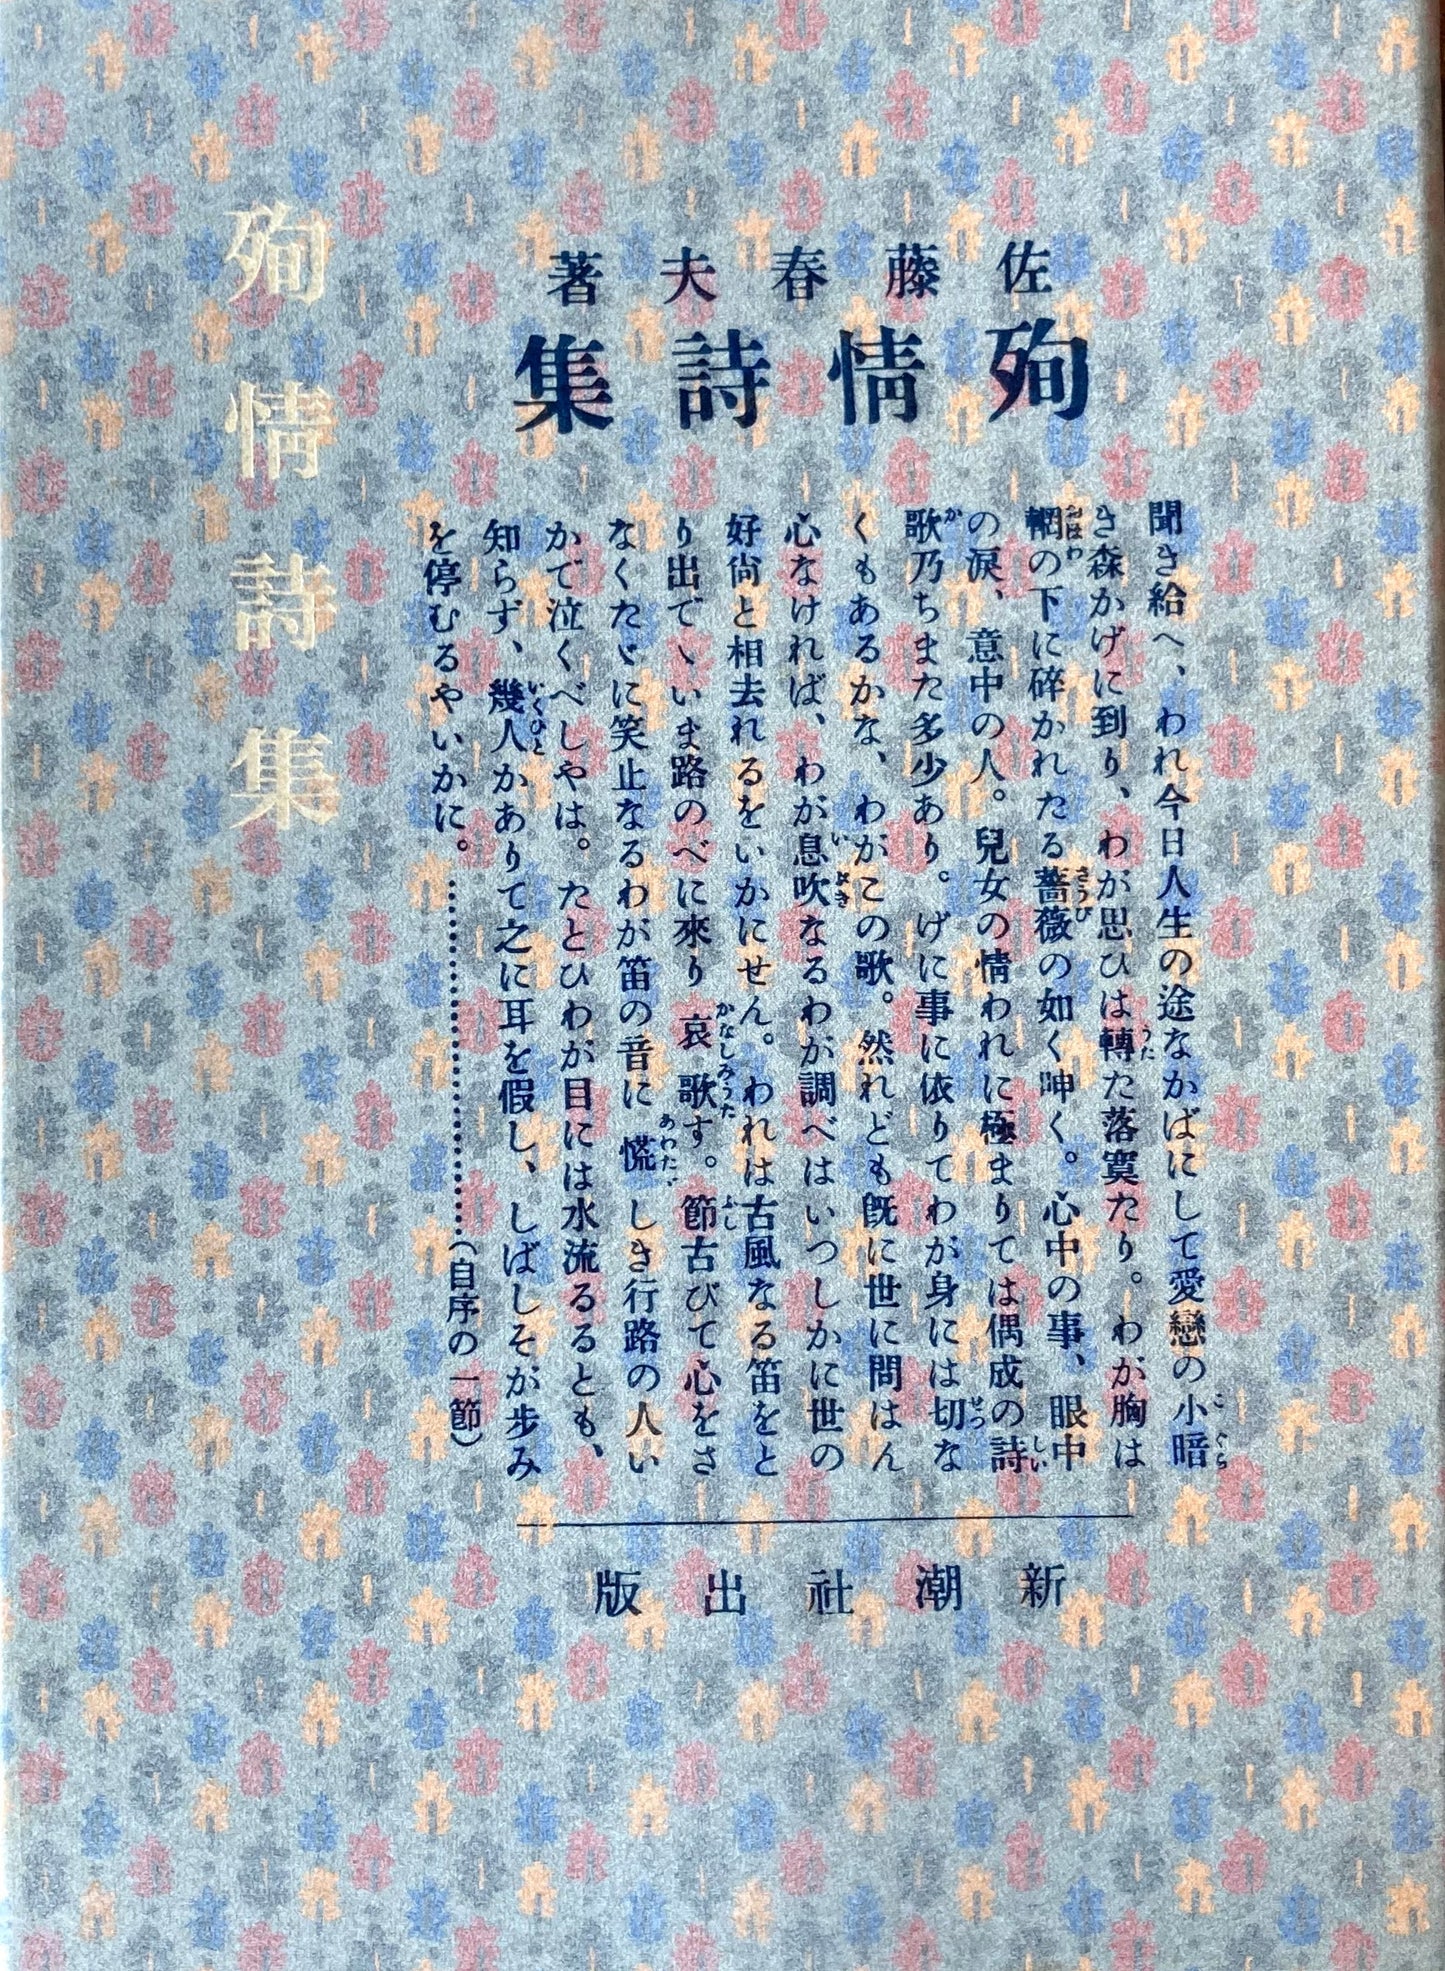 佐藤春夫著
殉情詩集
聞き給へ、われ今日人生の途なかばにして愛戀の小暗
き森かげに到り、わが思ひは轉た落寞たり。わが胸は
輞の下に碎かれたる薔薇の如く呻く。心中の事、眼中
の涙、意中の人。兒女の情われに極まりては偶成の詩
歌乃ちまた多少あり。げに事に依りてわが身には切な
くもあるかな、わがこの歌。然れども既に世に問はん
心なければ、わが息吹なるわが調べはいつしかに世の
好尙と相去れるをいかにせん。われは古風なる笛をと
り出でゝいま路のべに來り哀歌す。節古びて心をさ
なくたゞに笑止なるわが笛の音に慌しき行路の人い
かで泣くべしやは。たとひわが目には水流るるとも、
知らず、幾人かありて之に耳を假し、しばしそが歩み
を停むるやいかに。…………………（自序の一節）
新潮社出版
殉情詩集